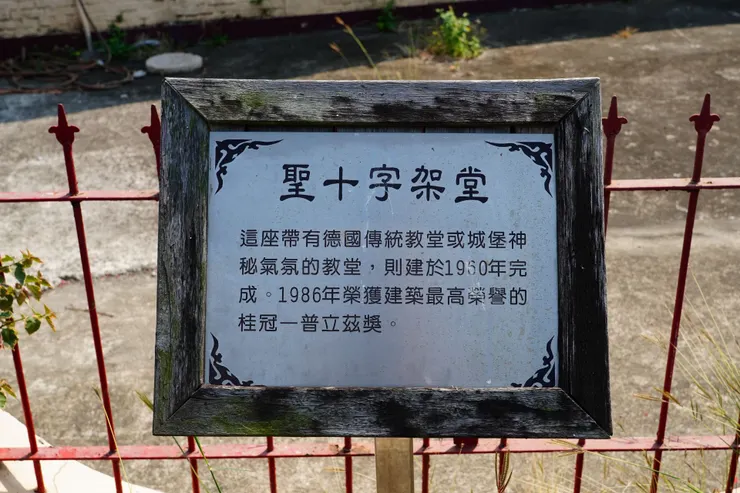 聖十字架堂
這座帶有德國傳統教堂或城堡神
秘氣氛的教堂，則建於1960年完
成。1986年榮獲建築最高榮譽的
桂冠一普立茲獎。